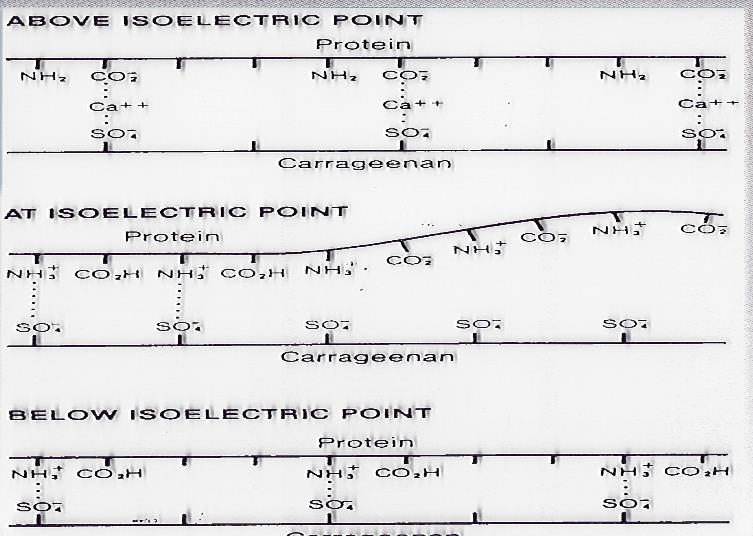 ABOVE ISOELECTRIC POINT
Protein
NH₂ CO₂⁻ NH₂ CO₂⁻ NH₂ CO₂⁻
Ca++ Ca++ Ca++
SO₄⁻ SO₄⁻ SO₄⁻
Carrageenan
AT ISOELECTRIC POINT
Protein
NH₃⁺ CO₂H NH₃⁺ CO₂H NH₃⁺ CO₂⁻ NH₃⁺ CO₂⁻ NH₃⁺ CO₂⁻
SO₄⁻ SO₄⁻ SO₄⁻ SO₄⁻ SO₄⁻
Carrageenan
BELOW ISOELECTRIC POINT
Protein
NH₃⁺ CO₂H NH₃⁺ CO₂H NH₃⁺ CO₂H
SO₄⁻ SO₄⁻ SO₄⁻
Carrageenan